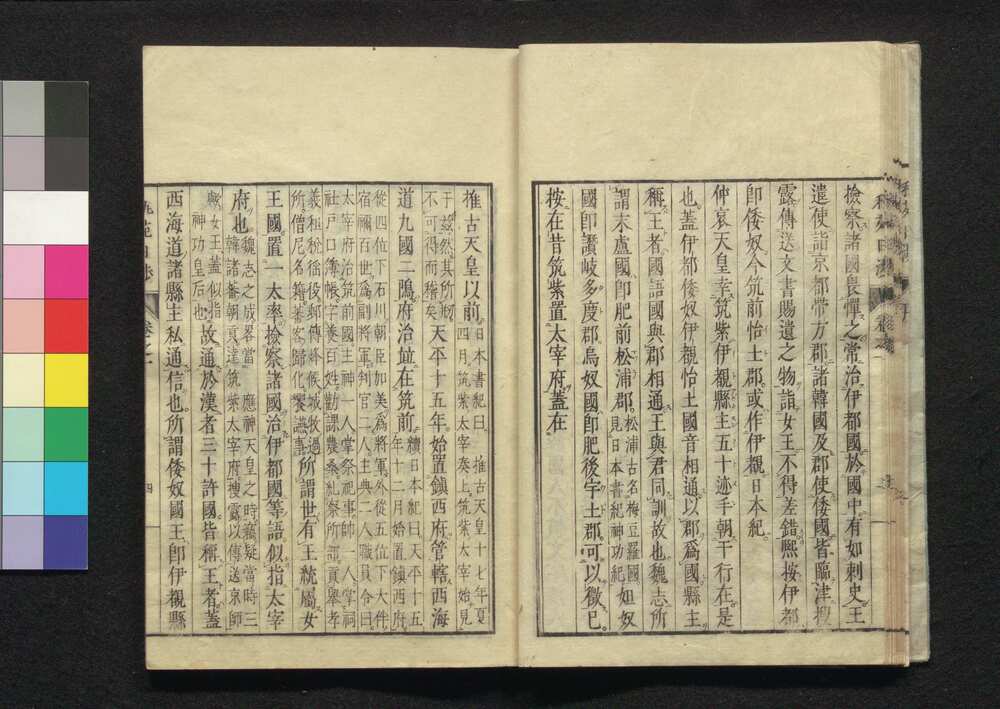 檢察諸國畏憚之常治伊都國於國中有如刺史王
遣使詣京都帶方郡諸韓國及郡使倭國皆臨津搜
露傳送文書賜遺之物詣女王不得差錯熙按伊都
即倭奴今筑前怡土郡或作伊覩日本紀
仲哀天皇幸筑紫伊覩縣主五十迹手朝于行在是
也蓋伊都倭奴伊覩怡土國音相通以郡爲國縣主
稱王者國語國與郡相通王與君同訓故也魏志所
謂末盧國即肥前松浦郡松浦古名梅豆羅國
見日本書紀神功紀姐奴
國即讃岐多度郡烏奴國即肥後宇土郡可以徵已
按在昔筑紫置太宰府蓋在
推古天皇以前日本書紀曰推古天皇十七年夏
四月筑紫太宰奏上筑紫太宰始見
于玆然其所
不可得而稽矣天平十五年始置鎮西府管轄西海
道九國二隝府治並在筑前續日本紀曰天平十五
年十二月始置鎮西府
從四位下石川朝臣加美爲將軍外從五位下大伴
宿禰百世爲副將軍判官二人主典二人職員令曰
太宰府治筑前國主神一人掌祭祀事帥一人掌祠
社戶口簿帳字養百姓勸課農桑糺察所部貢舉孝
義田租徭役郵傳烽候城牧過
所僧尼名籍蕃客歸化饗讌事所謂世有王統屬女
王國置一大率檢察諸國治伊都國等語似指太宰
府也魏志之成畧當應神天皇之時竊疑當時三
韓諸蕃朝貢達筑紫太宰府搜露以傳送京師
歟女王蓋似指
神功皇后也故通於漢者三十許國皆稱王者蓋
西海道諸縣主私通信也所謂倭奴國王即伊覩縣
卷之一
四